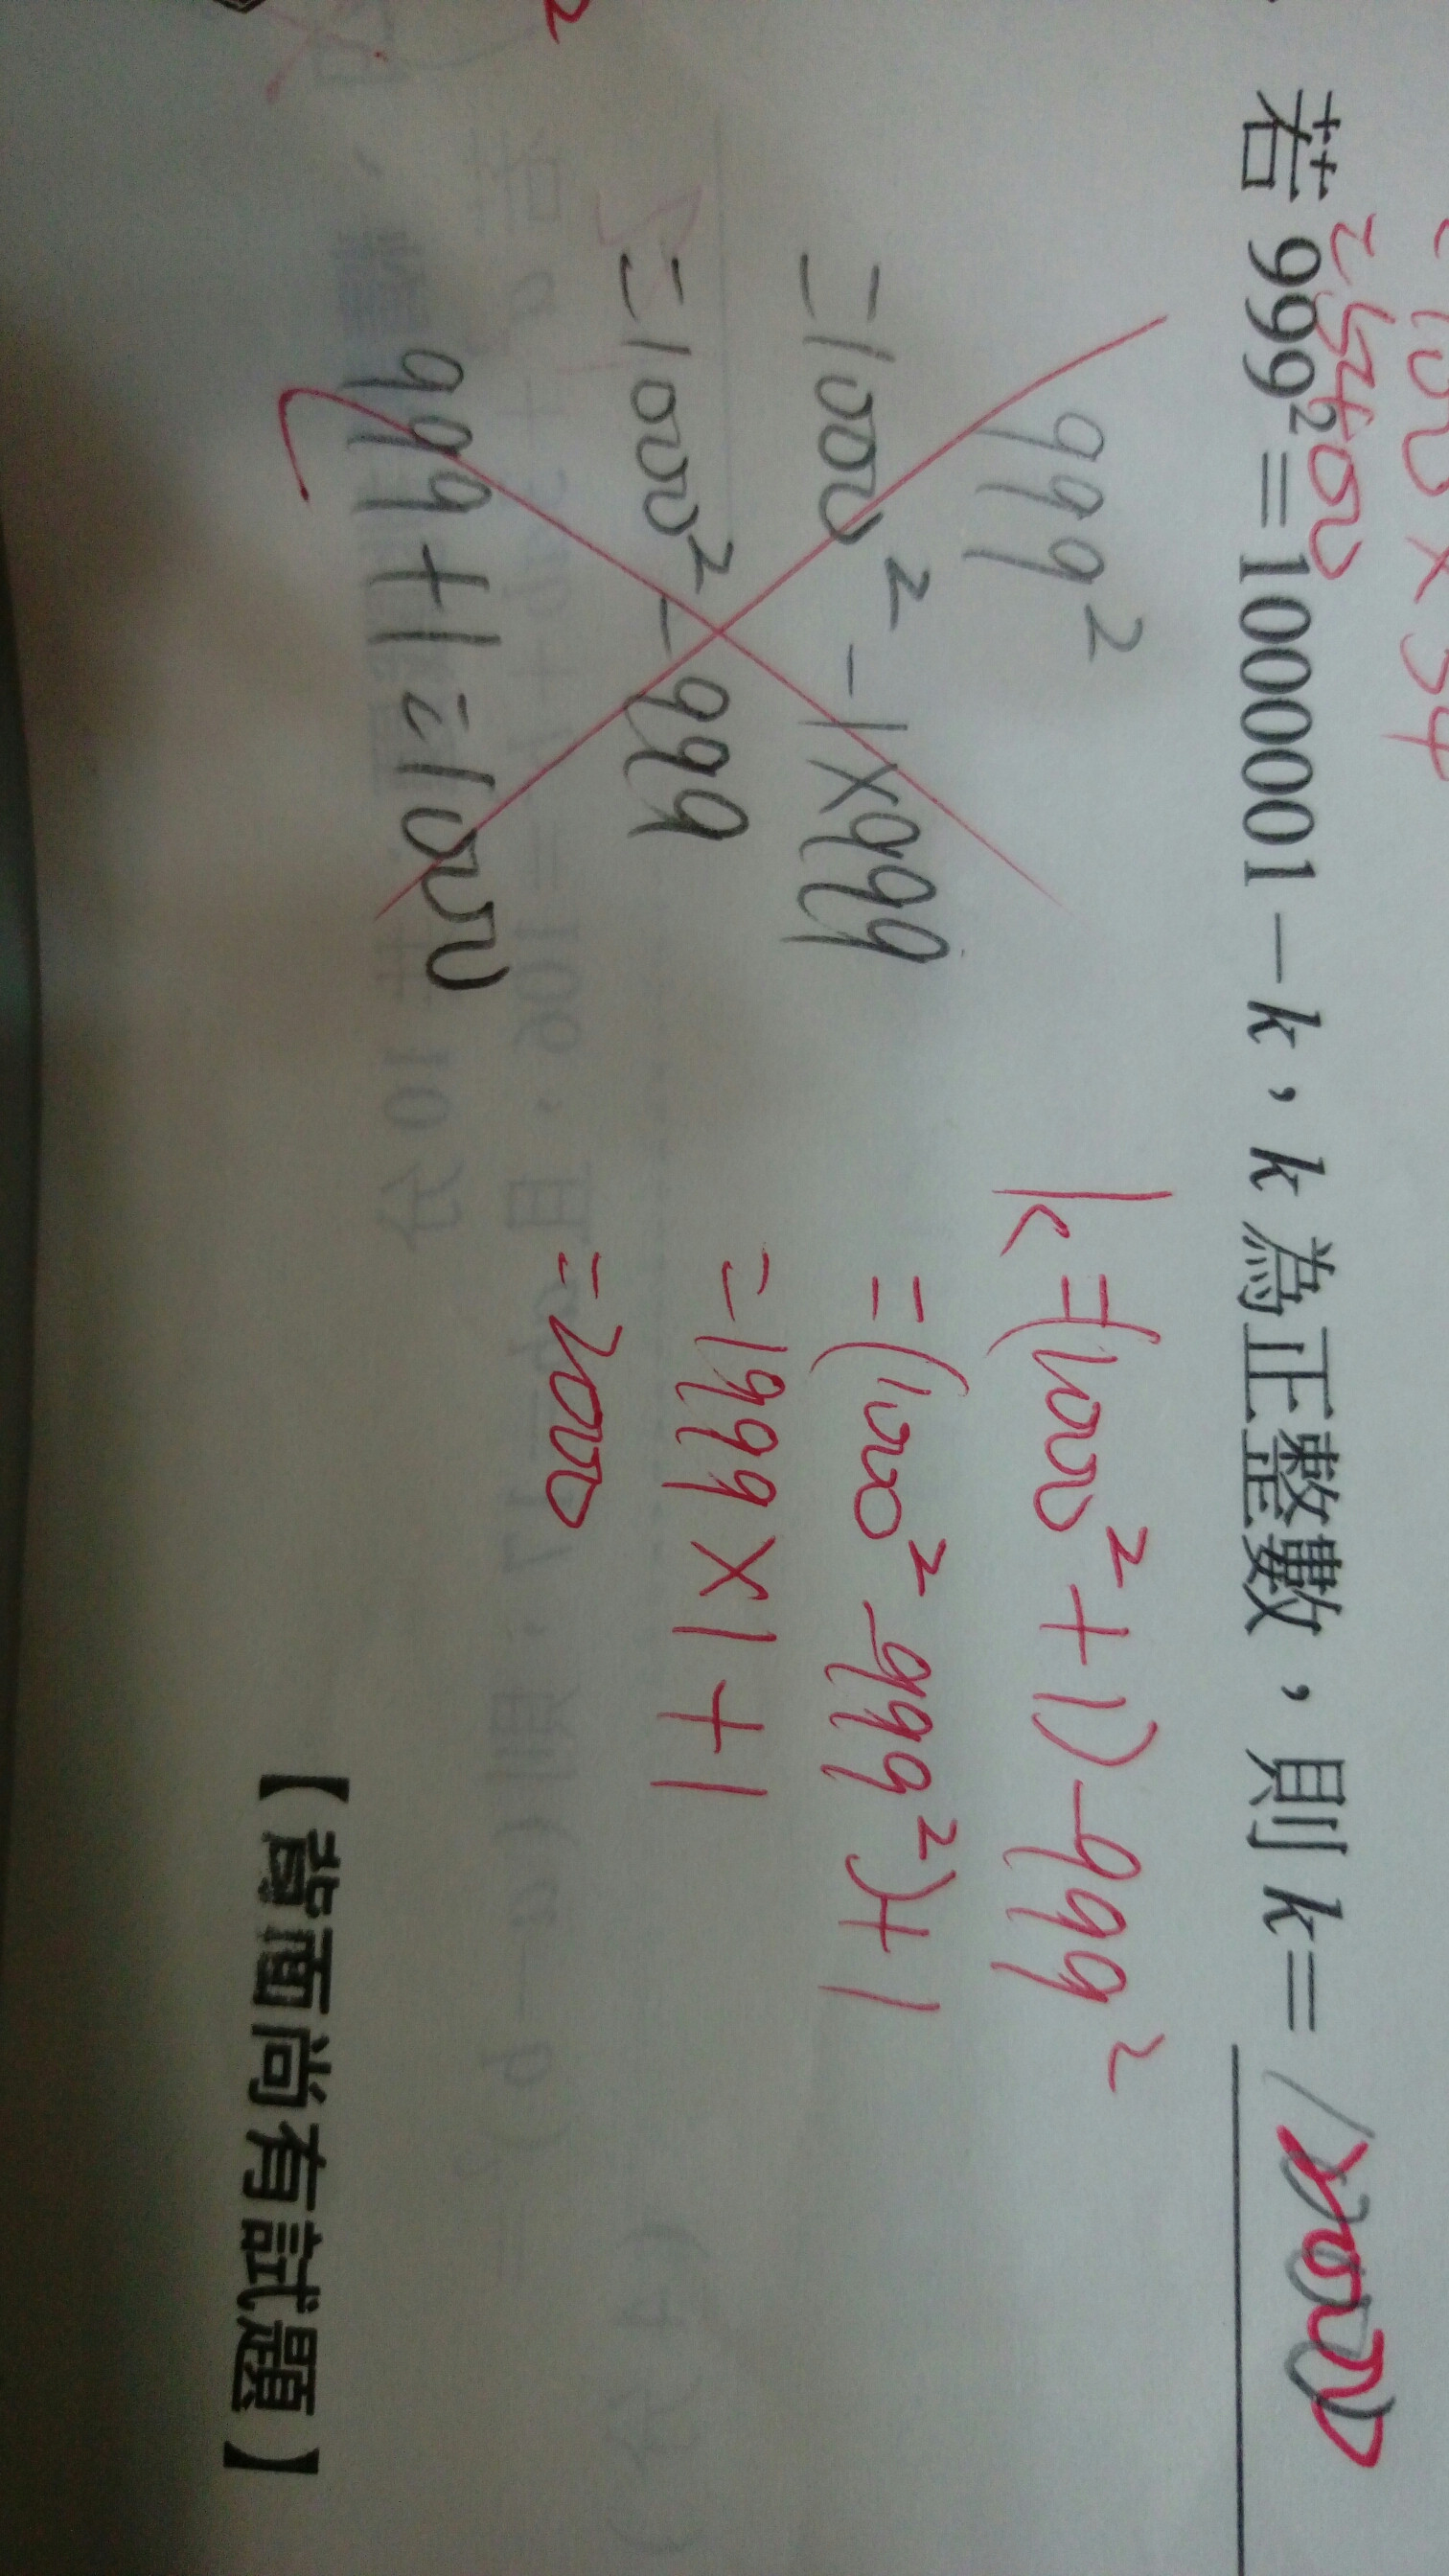 100 × 54
= 5400
若 999²=1000001-k,k 為正整數,則 k= 2000
999²
=1000²-1×999
=1000²-999
999+1=1000
k=(1000²+1)-999²
=(1000²-999²)+1
=1999×1+1
=2000
【背面尚有試題】